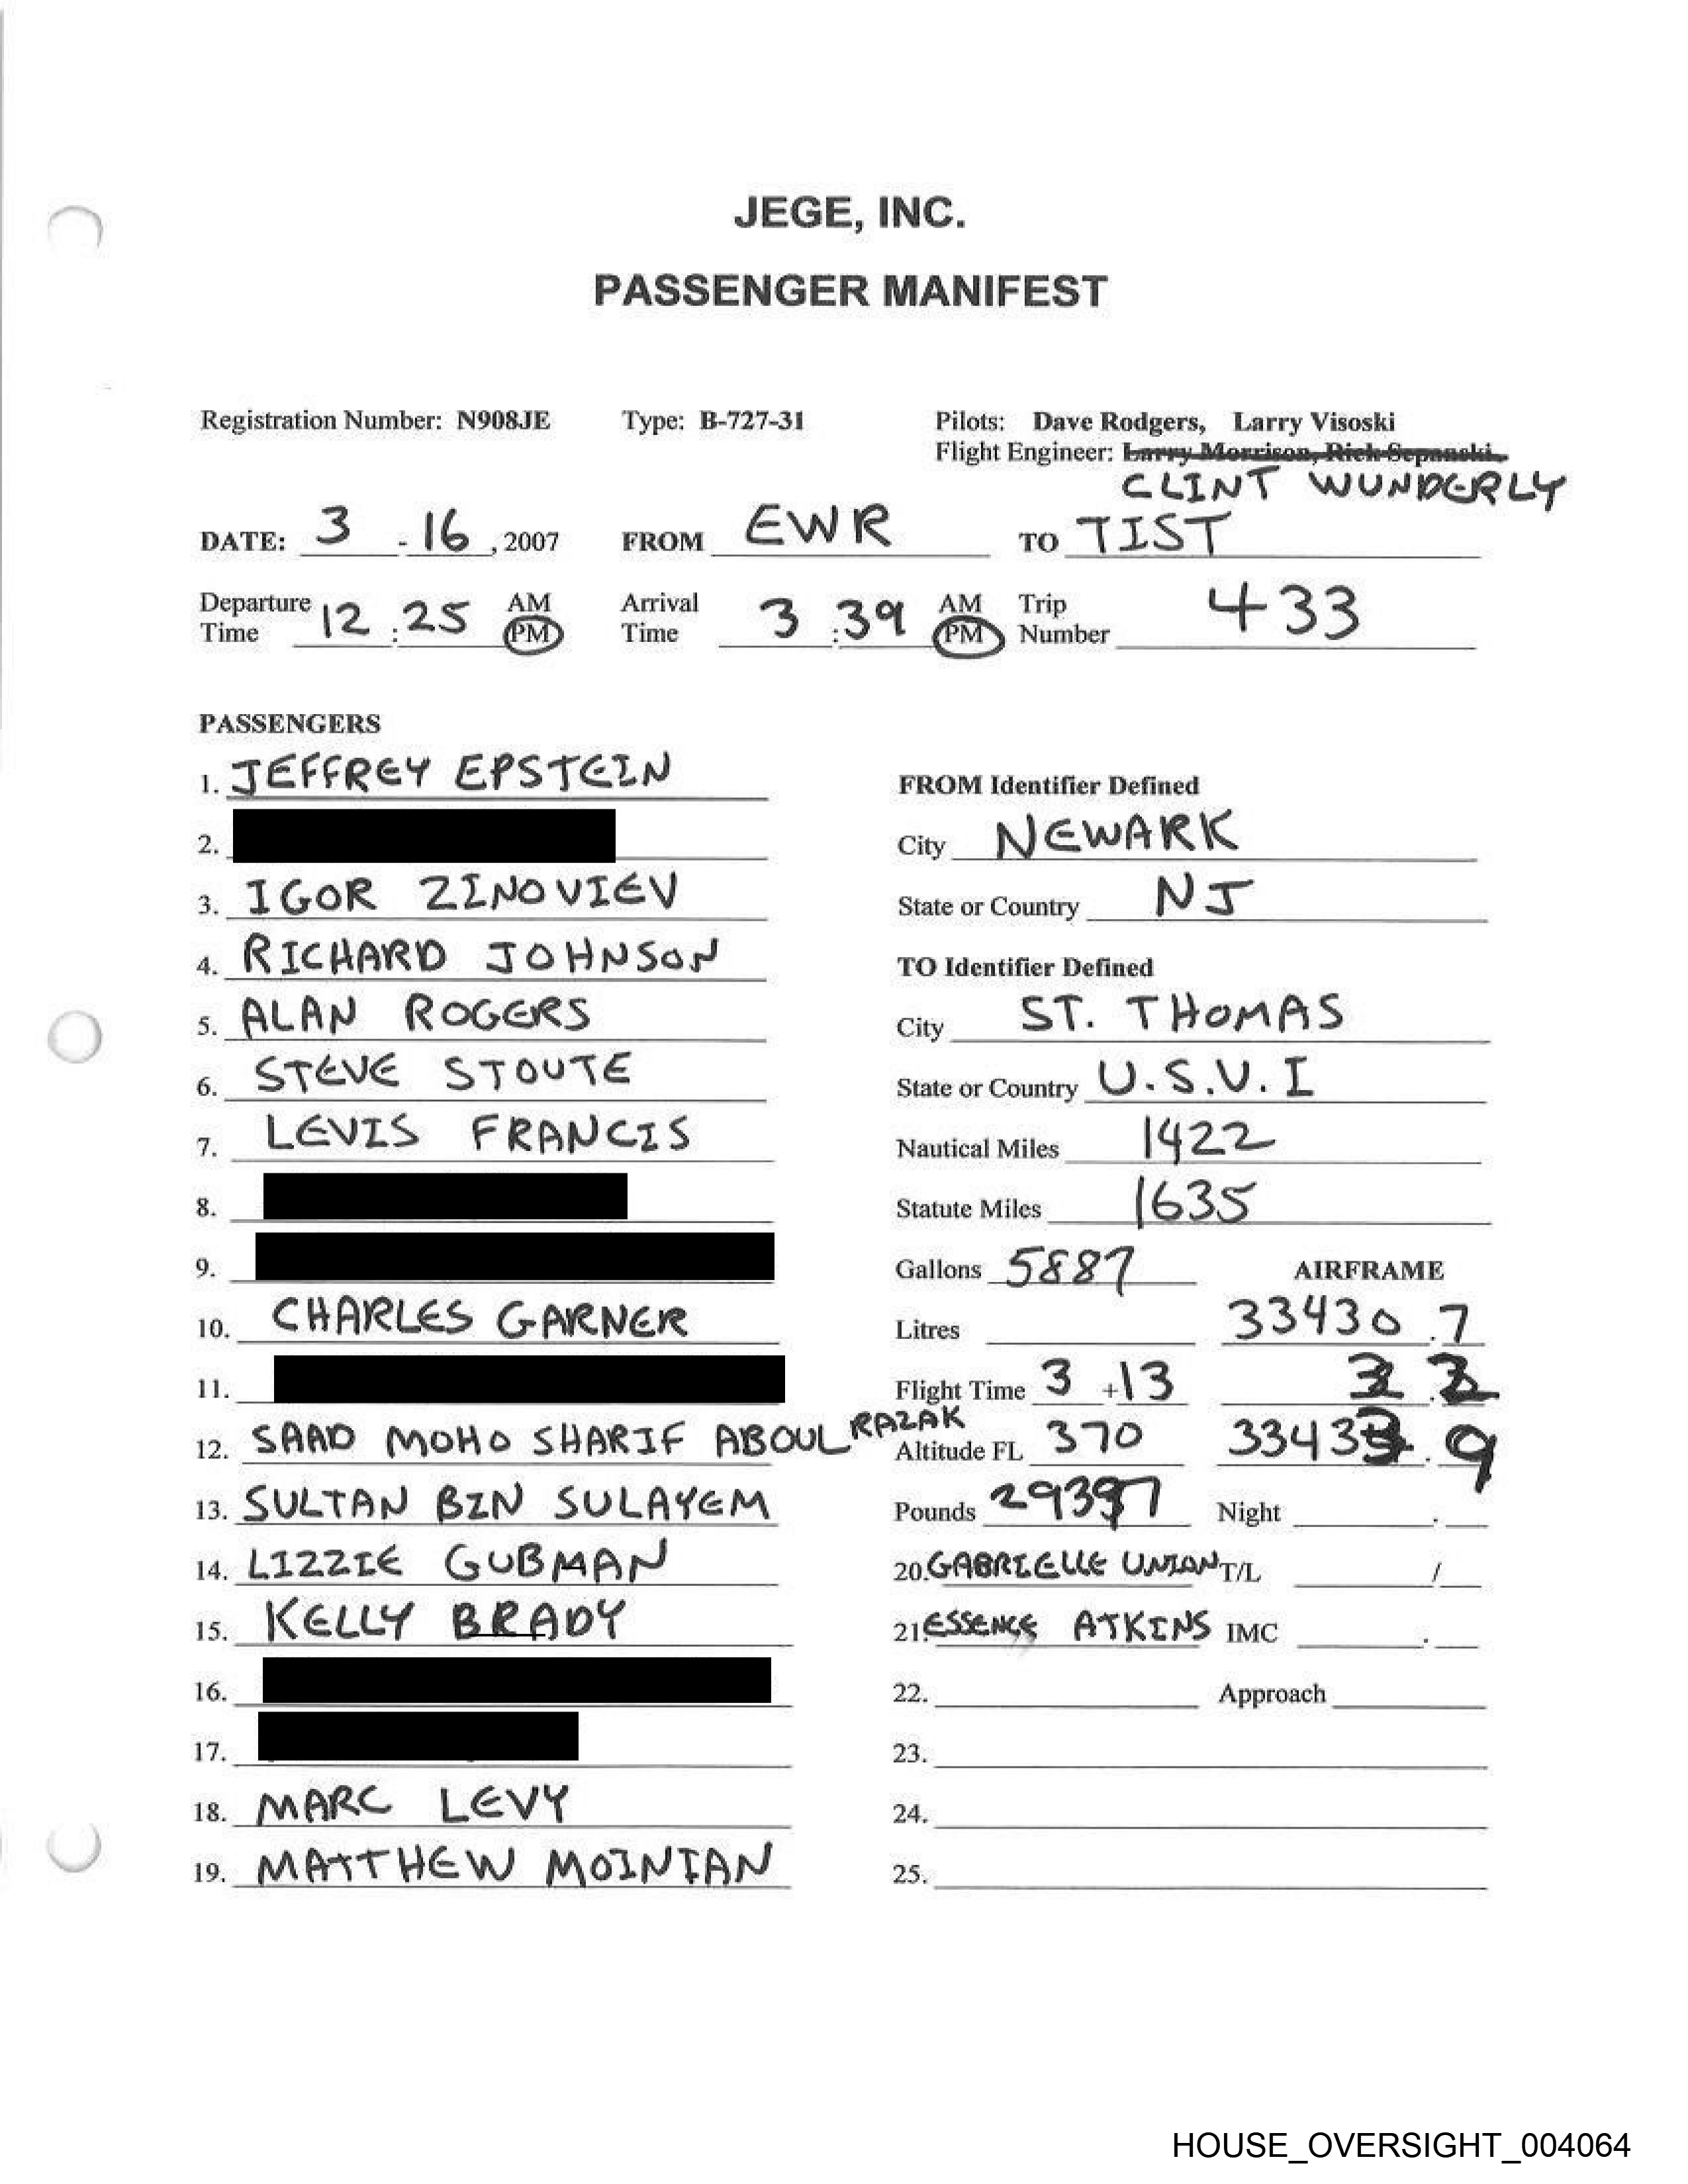 JEGE, INC.
PASSENGER MANIFEST
Registration Number: N908JE Type: B-727-31 Pilots: Dave Rodgers, Larry Visoski
Flight Engineer: Larry Morrison, Rick Sepanski,
CLINT WUNDERLY
DATE: 3 - 16 , 2007 FROM EWR TO TIST
Departure Time 12 : 25 AM PM Arrival Time 3 : 39 AM PM Trip Number 433
PASSENGERS
1. JEFFREY EPSTEIN
2.
3. IGOR ZINOVIEV
4. RICHARD JOHNSON
5. ALAN ROGERS
6. STEVE STOUTE
7. LEVIS FRANCIS
8.
9.
10. CHARLES GARNER
11.
12. SAAD MOHO SHARIF ABOUL RAZAK
13. SULTAN BIN SULAYEM
14. LIZZIE GUBMAN
15. KELLY BRADY
16.
17.
18. MARC LEVY
19. MATTHEW MOINIAN
FROM Identifier Defined
City NEWARK
State or Country NJ
TO Identifier Defined
City ST. THOMAS
State or Country U.S.V.I
Nautical Miles 1422
Statute Miles 1635
Gallons 5887 AIRFRAME
Litres 33430 .7
Flight Time 3 +13 3 .2
Altitude FL 370 33433 . 9
Pounds 29397 Night .
20. GABRIELLE UNION T/L /
21. ESSENCE ATKINS IMC .
22. Approach
23.
24.
25.
HOUSE_OVERSIGHT_004064